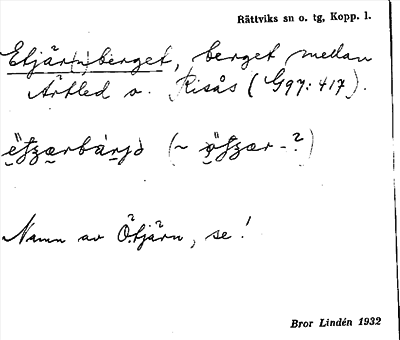 Rättviks sn o. tg, Kopp. l.
Etjär(n)berget, berget mellan
Ärtled o. Risås (G97:417).
(~ -?)
Namn av Ötjärn, se!
Bror Lindén 1932